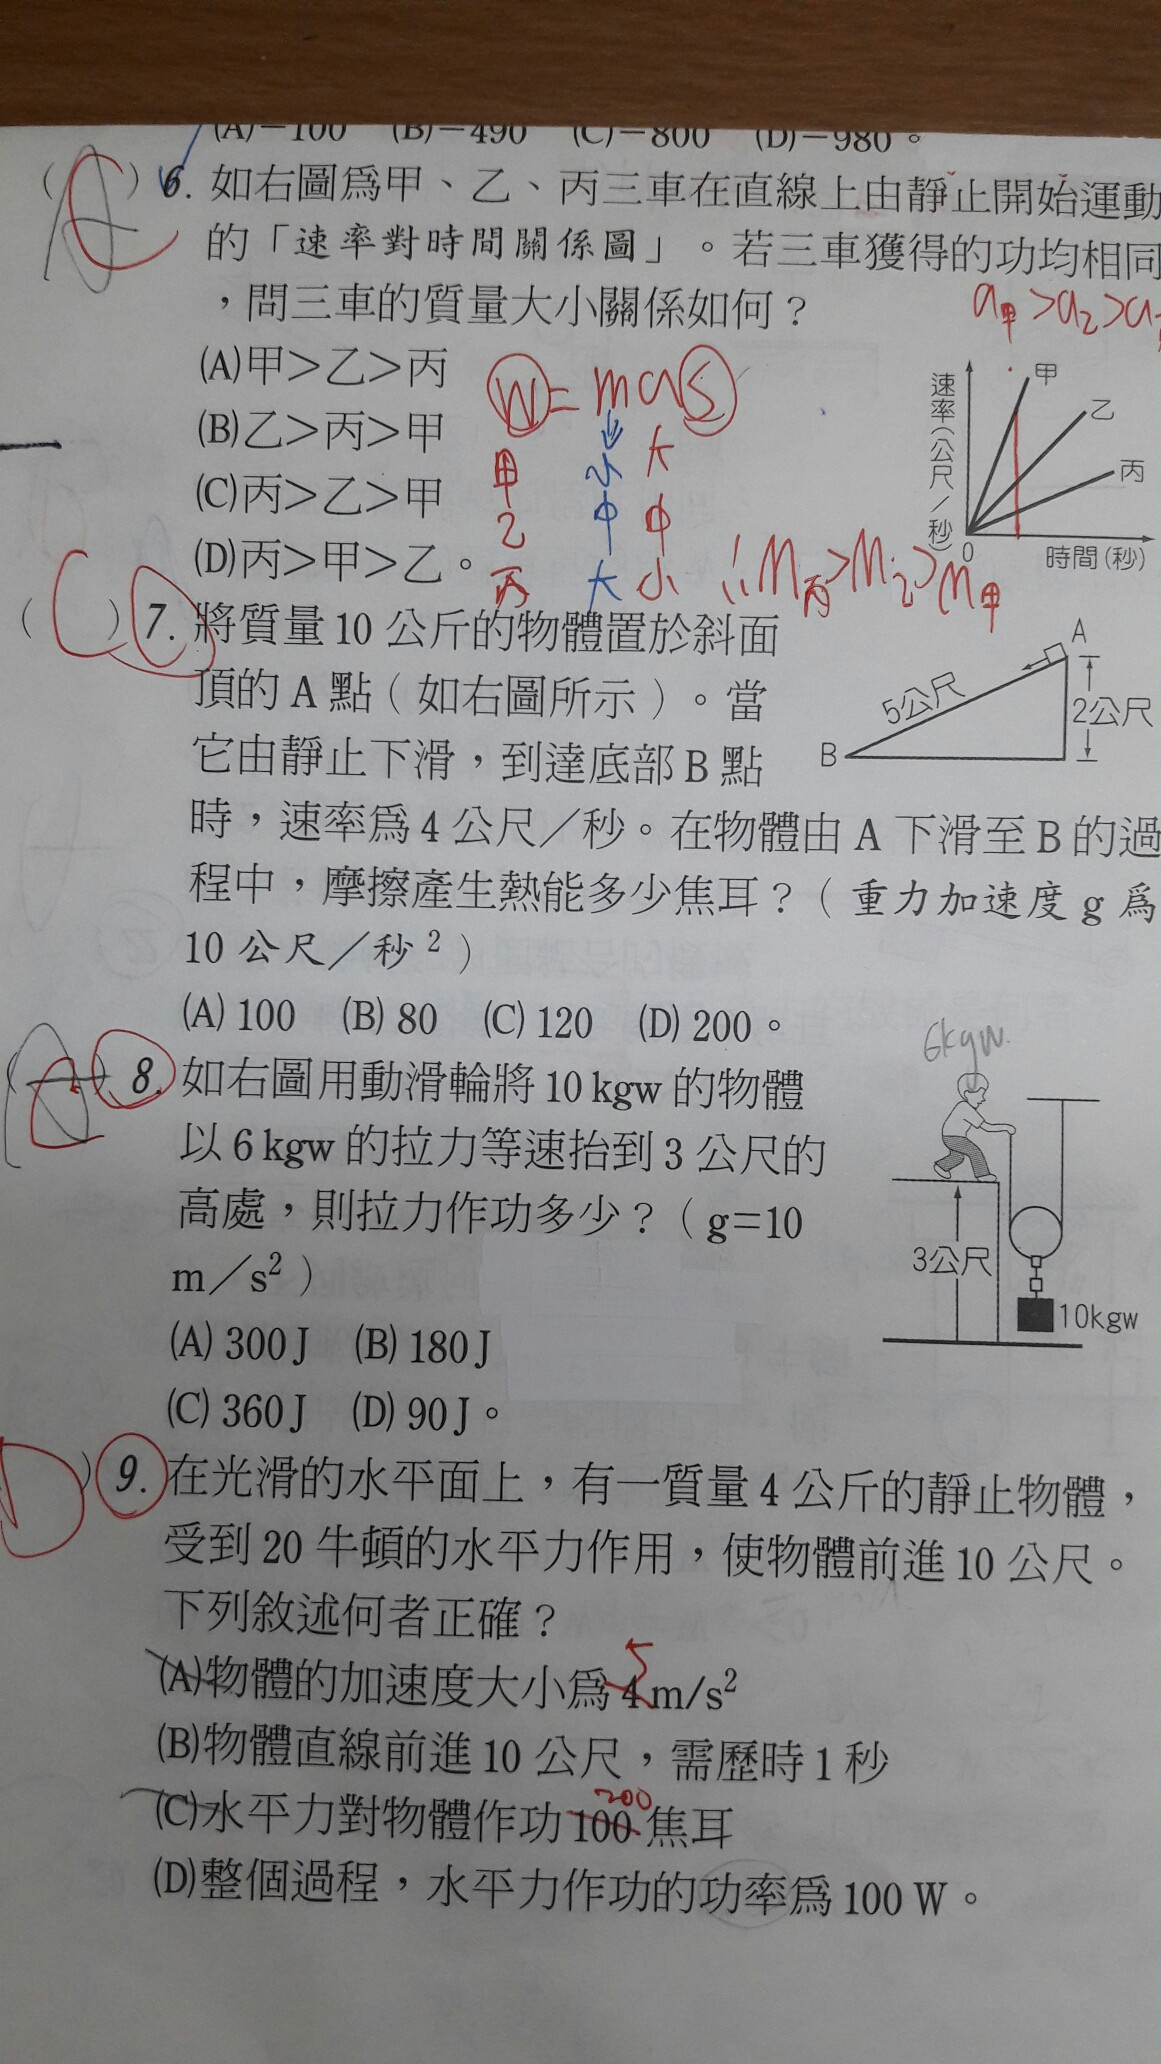 (A)－100 (B)－490 (C)－800 (D)－980。
( C ) 6. 如右圖爲甲、乙、丙三車在直線上由靜止開始運動
的「速率對時間關係圖」。若三車獲得的功均相同
，問三車的質量大小關係如何？
a甲>a乙>a
(A)甲＞乙＞丙
(B)乙＞丙＞甲
(C)丙＞乙＞甲
(D)丙＞甲＞乙。
W = m a S
甲 小 大
乙 中 中
丙 大 小
∴M丙>M乙>M甲
速率(公尺／秒)
甲
乙
丙
0
時間(秒)
( C ) 7. 將質量 10 公斤的物體置於斜面
頂的 A 點（如右圖所示）。當
它由靜止下滑，到達底部 B 點
時，速率爲 4 公尺／秒。在物體由 A 下滑至 B 的過
程中，摩擦產生熱能多少焦耳？（重力加速度 g 爲
10 公尺／秒²）
(A) 100 (B) 80 (C) 120 (D) 200。
A
5公尺
2公尺
B
8. 如右圖用動滑輪將 10 kgw 的物體
以 6 kgw 的拉力等速抬到 3 公尺的
高處，則拉力作功多少？（g=10
m／s²）
(A) 300 J (B) 180 J
(C) 360 J (D) 90 J。
6kgw
3公尺
10kgw
D ) 9. 在光滑的水平面上，有一質量 4 公斤的靜止物體，
受到 20 牛頓的水平力作用，使物體前進 10 公尺。
下列敘述何者正確？
5
(A)物體的加速度大小爲 4 m/s²
(B)物體直線前進 10 公尺，需歷時 1 秒
200
(C)水平力對物體作功 100 焦耳
(D)整個過程，水平力作功的功率爲 100 W。